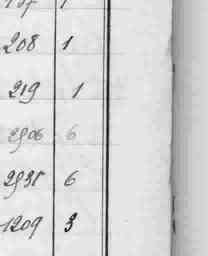 208 1
219 1
2906 6
2931 6
1209 3